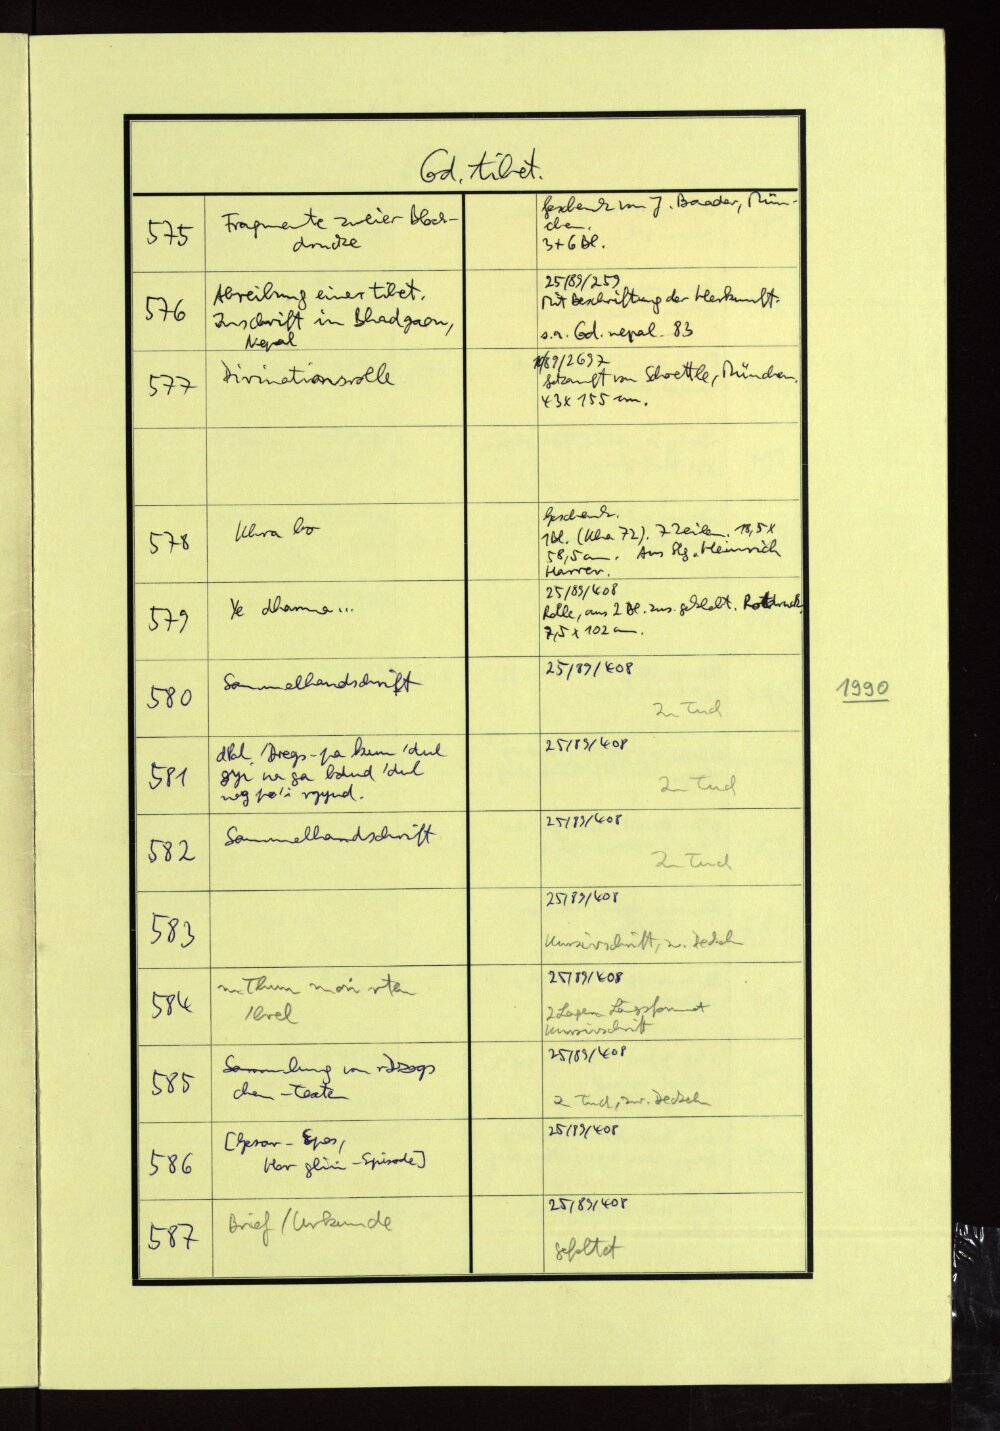 Cod. tibet.
575
Fragmente zweier Block-
drucke
Geschenk von J. Baader, Mün-
chen.
3+6 Bl.
576
Abreibung einer tibet.
Inschrift in Bhadgaon,
Nepal
25/89/259
Mit Beschriftung der Herkunft.
s.a. Cod. nepal. 83
577
Divinationsrolle
/89/2697
Gekauft von Schoettle, München.
43 x 155 cm.
578
Khra bo
Geschenk.
1 Bl. (Kha 72). 7 Zeilen. 18,5 x
58,5 cm. Aus Slg. Heinrich
Harrer.
579
Ye dharma...
25/89/408
Rolle, aus 2 Bl. zus. geklebt. Rotdruck.
7,5 x 102 cm.
580
Sammelhandschrift
25/89/408
In Tuch
1990
581
dPal Dregs-pa kun 'dul
gyi na ga bdud 'dul
nag po'i rgyud.
25/89/408
In Tuch
582
Sammelhandschrift
25/89/408
In Tuch
583
25/89/408
Kursivschrift, zw. Deckeln
584
mThun mon rten
'brel
25/89/408
2 Lagen Längsformat
Kursivschrift
585
Sammlung von rDzogs
chen-Texten
25/89/408
In Tuch, zw. Deckeln
586
[Gesar-Epos,
Hor glin-Episode]
25/89/408
587
Brief/Urkunde
25/89/408
gefaltet